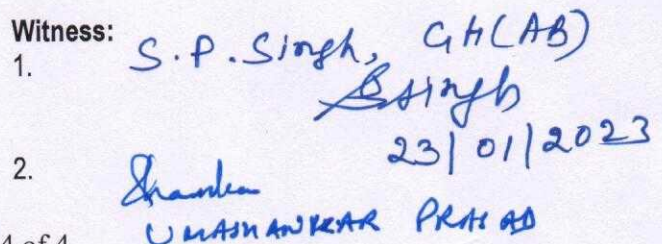 Witness:
1. S.P. Singh, GH(AB)
Singh
23/01/2023
2.
UMASHANKAR PRASAD
4 of 4